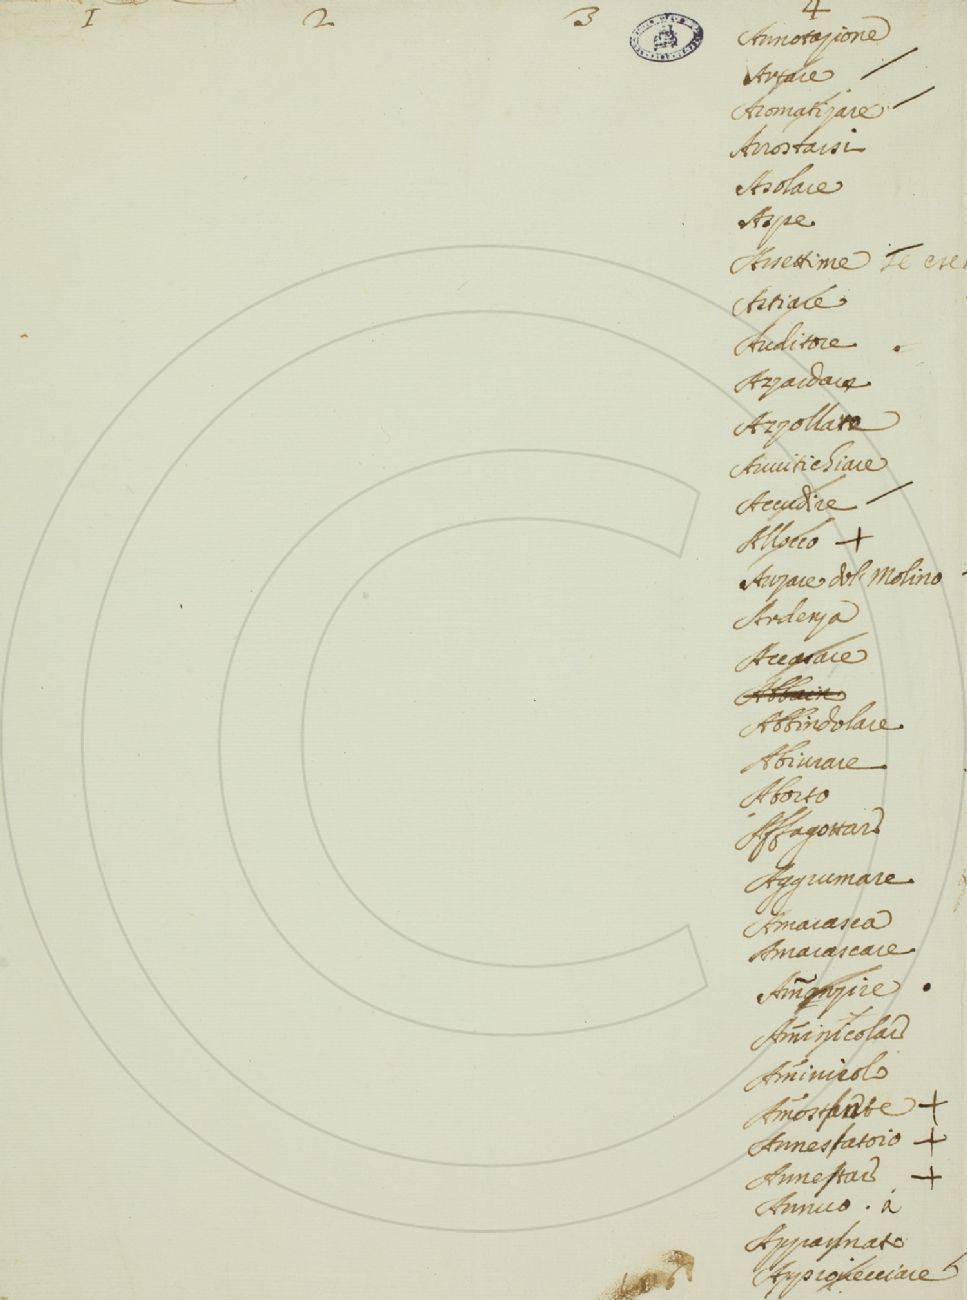 1 2 3 4
Annotazione
Artare
Aromatizare
Arrostarsi
Asolare
Aspe
Assettime
Astiare
Auditore
Azzardare
Azzollare
Avviticchiare
Accudire
Allocco +
Alzare dol Molino
Ardenza
Accasare
Abbindolare
Abiurare
Aborto
Affagottare
Aggrumare
Amarasca
Amarascare
Am̃anzire
Am̃inicolare
Am̃inicolo
Am̃ostante +
Annestatoio +
Annestare +
Annuo . à
Appannato